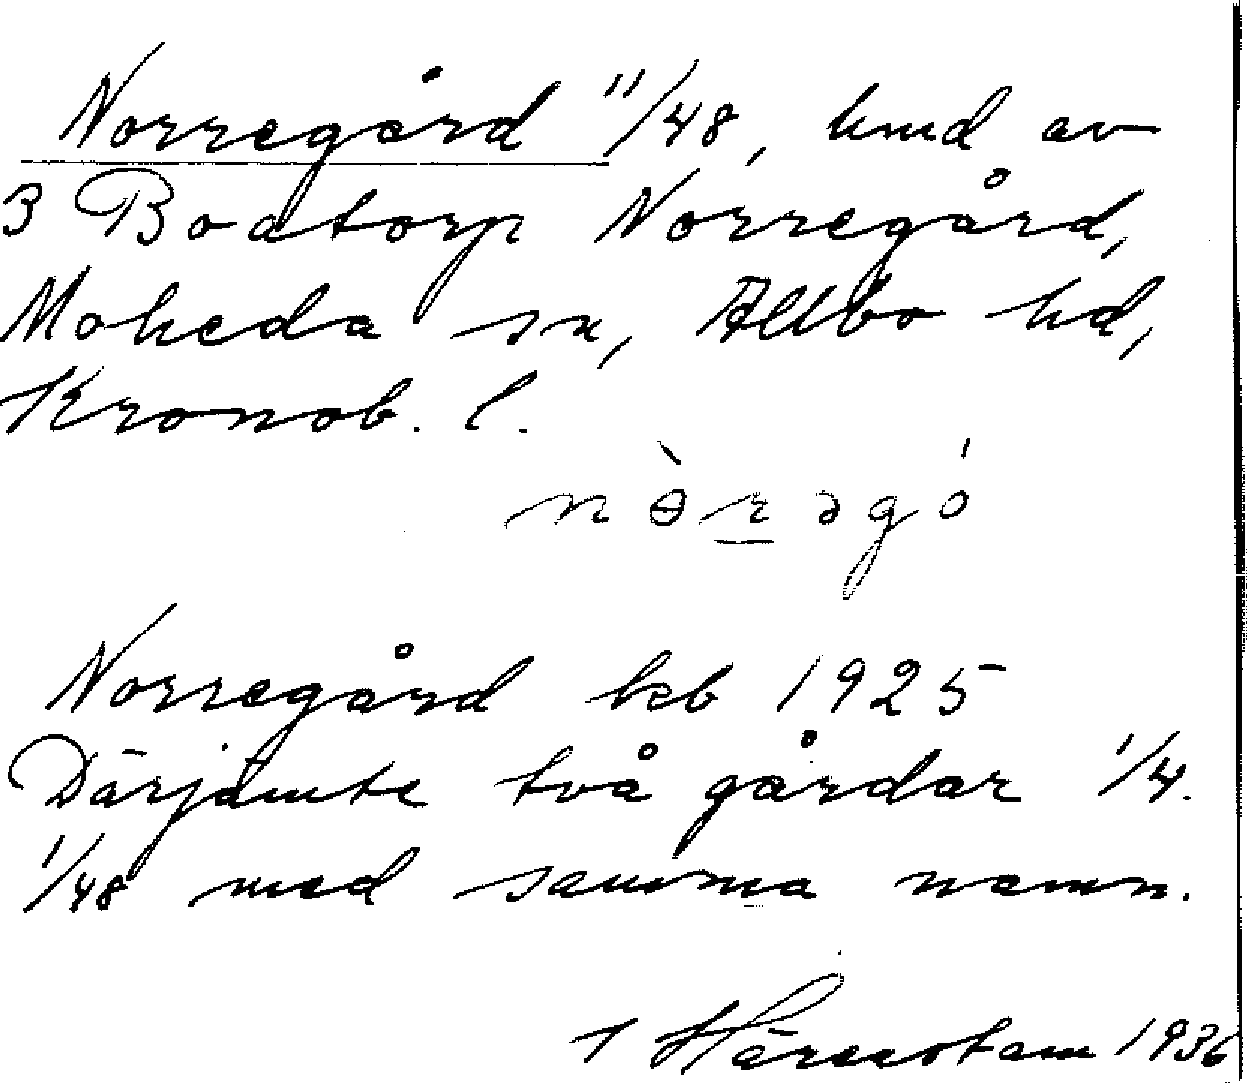 Norregård 11/48, hmd av
3 Boatorp Norregård,
Moheda sn, Allbo hd,
Kronob. l.
nò̱rəgó
Norregård kb 1925
Därjämte två gårdar 1/4.
1/48 med samma namn.
1936